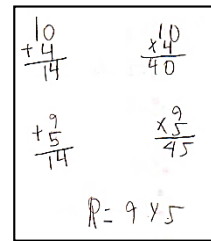 10
+4
14
10
x4
40
+9
5
14
x9
5
45
R= 9 x 5